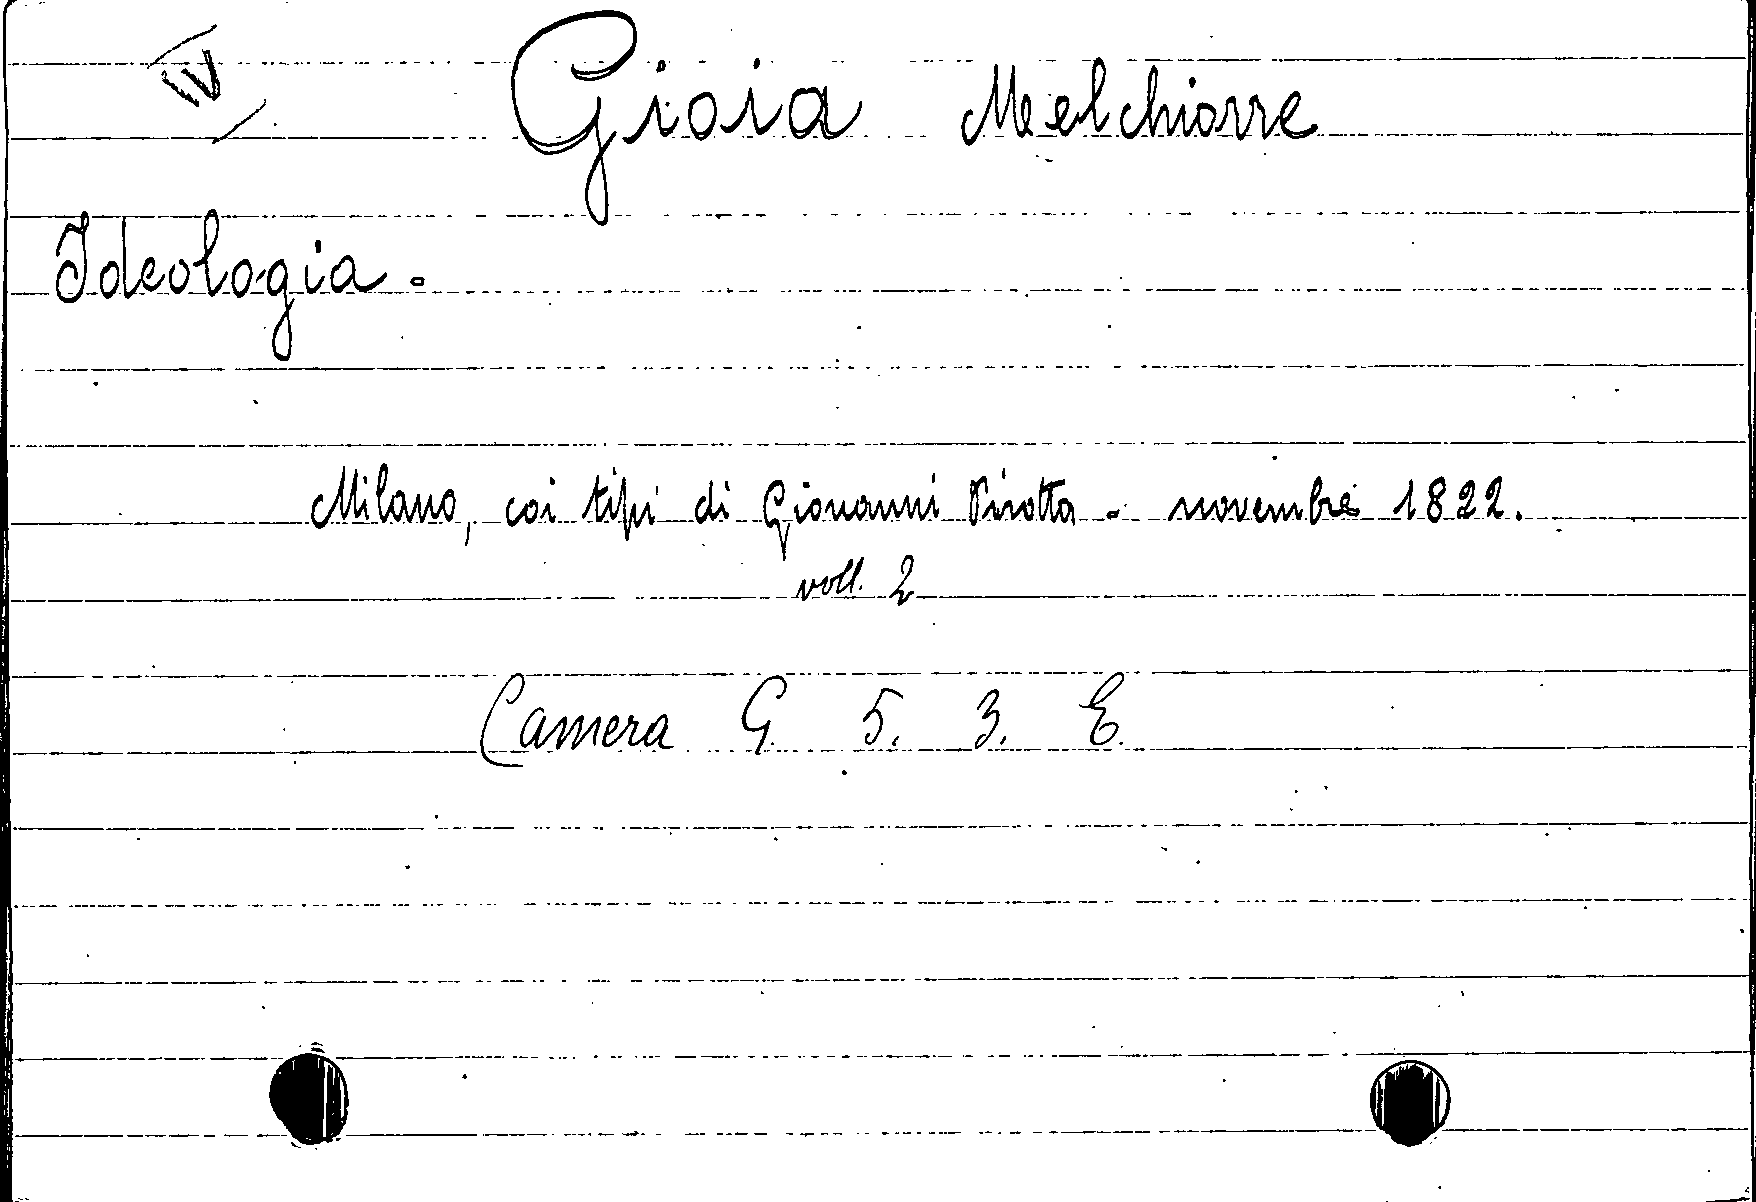 IV
Gioia Melchiorre
Ideologia.
Milano, coi tipi di Giovanni Pirotta - novembre 1822.
voll. 2
Camera G. 5. 3. E.